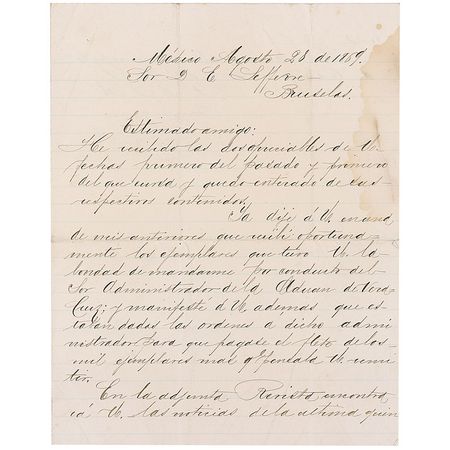 México Agosto 28 de 1869.
Sor D E Lefevre
Bruselas.
Estimado amigo:
He recibido las dos apreciables de V.
fechas primero del pasado y primero
del que cursa y quedo enterado de sus
respectivos contenidos.
Ya dije á V. en una
de mis anteriores que recibí oportuna-
mente los ejemplares que tuvo V. la
bondad de mandarme por conducto del
Sor Administrador de la Aduan de Vera-
Cruz; y manifesté á V. ademas que es-
taban dadas las ordenes a dicho admi-
nistrador para que pagase el flete de los
mil ejemplares mas qe pensaba V. remi-
tir.
En la adjunta Revista encontra-
rá V. las noticias de la ultima quin